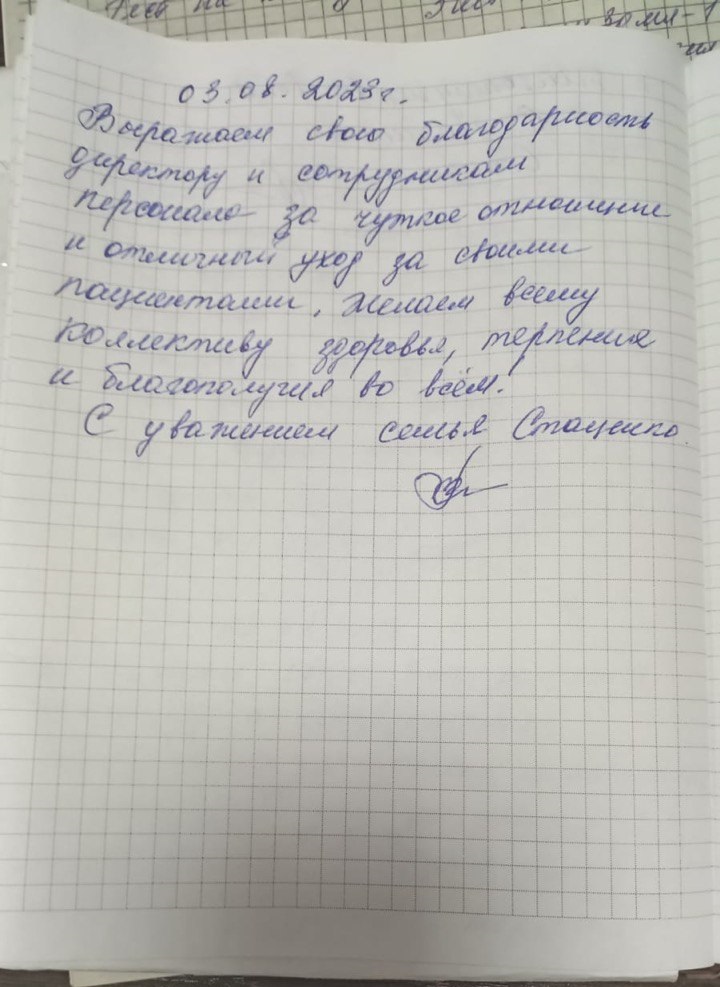 03.08.2023г.
Выражаем свою благодарность
директору и сотрудникам
персонала за чуткое отношение
и отличный уход за своими
пациентами, желаем всему
коллективу здоровья, терпения
и благополучия во всём!
С уважением семья Стаценко.